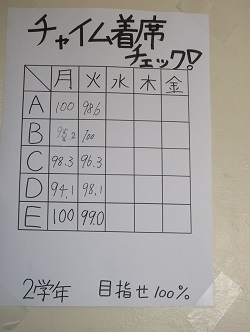 チャイム着席
チェック!
月 火 水 木 金
A 100 98.6
B 100
C 98.3 96.3
D 94.1 98.1
E 100 99.0
2学年 目指せ100%